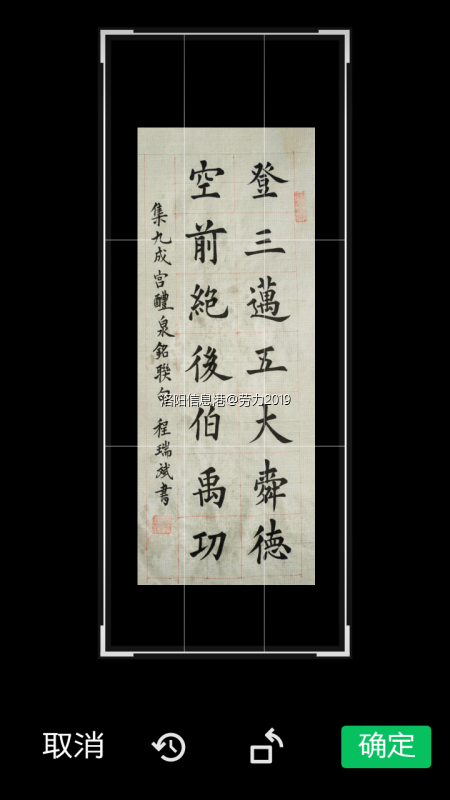 登三邁五大舜德
空前絕後伯禹功
集九成宮醴泉銘聯句 程瑞斌書
洛阳信息港@劳力2019
取消
确定